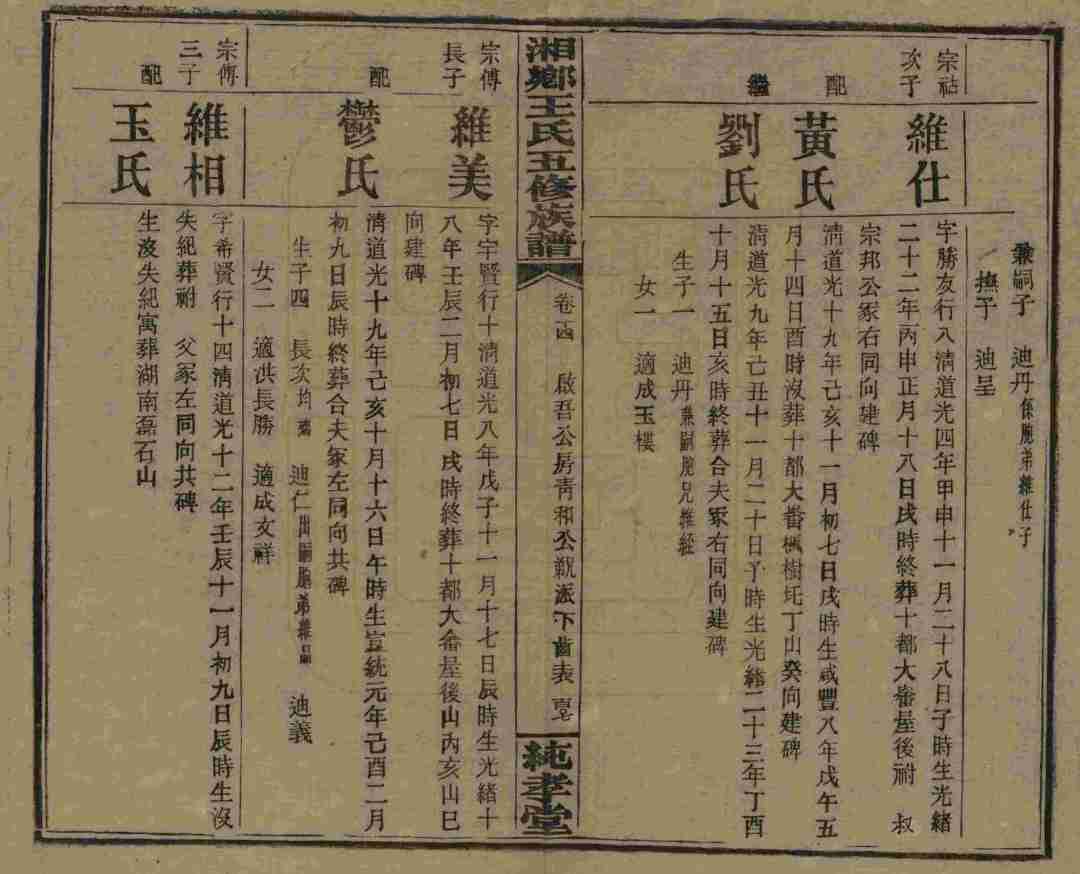 兼嗣子　迪丹係胞弟維仕子
撫子　迪呈
宗祜次子
維仕
字勝友行八清道光四年甲申十一月二十八日子時生光緒
二十二年丙申正月十八日戌時終葬十都大畨屋後祔　叔
宗邦公冢右同向建碑
配
黃氏
清道光十九年己亥十一月初七日戌時生咸豐八年戊午五
月十四日酉時沒葬十都大畨楓樹坵丁山癸向建碑
繼
劉氏
清道光九年己丑十一月二十日子時生光緒二十三年丁酉
十月十五日亥時終葬合夫冢右同向建碑
生子一　迪丹兼嗣胞兄維經
女一　適成玉樓
湘鄉王氏五修族譜
卷
啟吾公房青和公派下齒表
純孝堂
宗傳長子
維美
字宇賢行十清道光八年戊子十一月十七日辰時生光緒十
八年壬辰二月初七日戌時終葬十都大畨屋後山丙亥山巳
向建碑
配
鬱氏
清道光十九年己亥十月十六日午時生宣統元年己酉二月
初九日辰時終葬合夫冢左同向共碑
生子四　長次均殤　迪仁出嗣胞弟維　迪義
女二　適洪長勝　適成文祥
宗傳三子
維相
字希賢行十四清道光十二年壬辰十一月初九日辰時生沒
失紀葬祔　父冢左同向共碑
配
玉氏
生沒失紀寓葬湖南磊石山